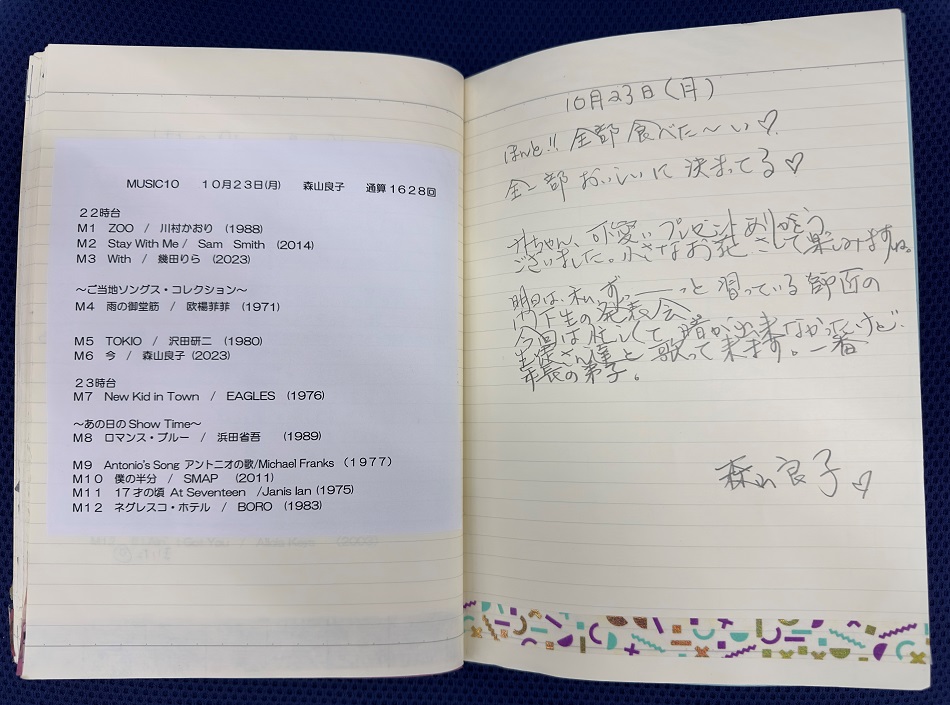 MUSIC10　１０月２３日(月)　森山良子　通算１６２８回
２２時台
M1　ZOO　/　川村かおり　(1988)
M2　Stay With Me /　Sam　Smith　(2014)
M3　With　/　幾田りら　(2023)
～ご当地ソングス・コレクション～
M４　雨の御堂筋　/　欧陽菲菲　(1971)
M５　TOKIO　/　沢田研二　(1980)
M６　今　/　森山良子(2023)
２３時台
M７　New Kid in Town　/　EAGLES　(1976)
～あの日の Show Time～
M８　ロマンス・ブルー　/　浜田省吾　(1989)
M９　Antonio's Song アントニオの歌/Michael Franks　(１９７７)
M１０　僕の半分　/　SMAP　(2011)
M１１　１７才の頃　At Seventeen　/Janis Ian (1975)
M１２　ネグレスコ・ホテル　/　BORO　(1983)
10月23日(月)
ほんと!! 全部 食べた〜い♡
全部 おいしいに 決まってる♡
ちゃん、可愛いプレゼントありがとう
ございました。小さなお花 さして楽しみますね。
明日は、私 ず———っと 習っている 師匠の
門下生の発表会。
今回は忙しくて 暗譜が出来なかったけど、
生徒さん達と 歌って来ます。一番
年長の弟子。
森山良子♡